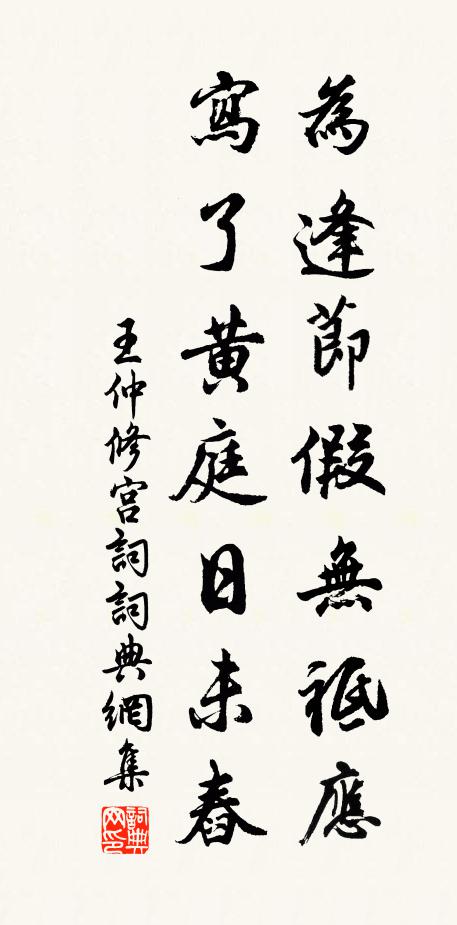 為逢節假無祗應
寫了黃庭日未舂
王仲修宮詞詞典網集
詞典网印